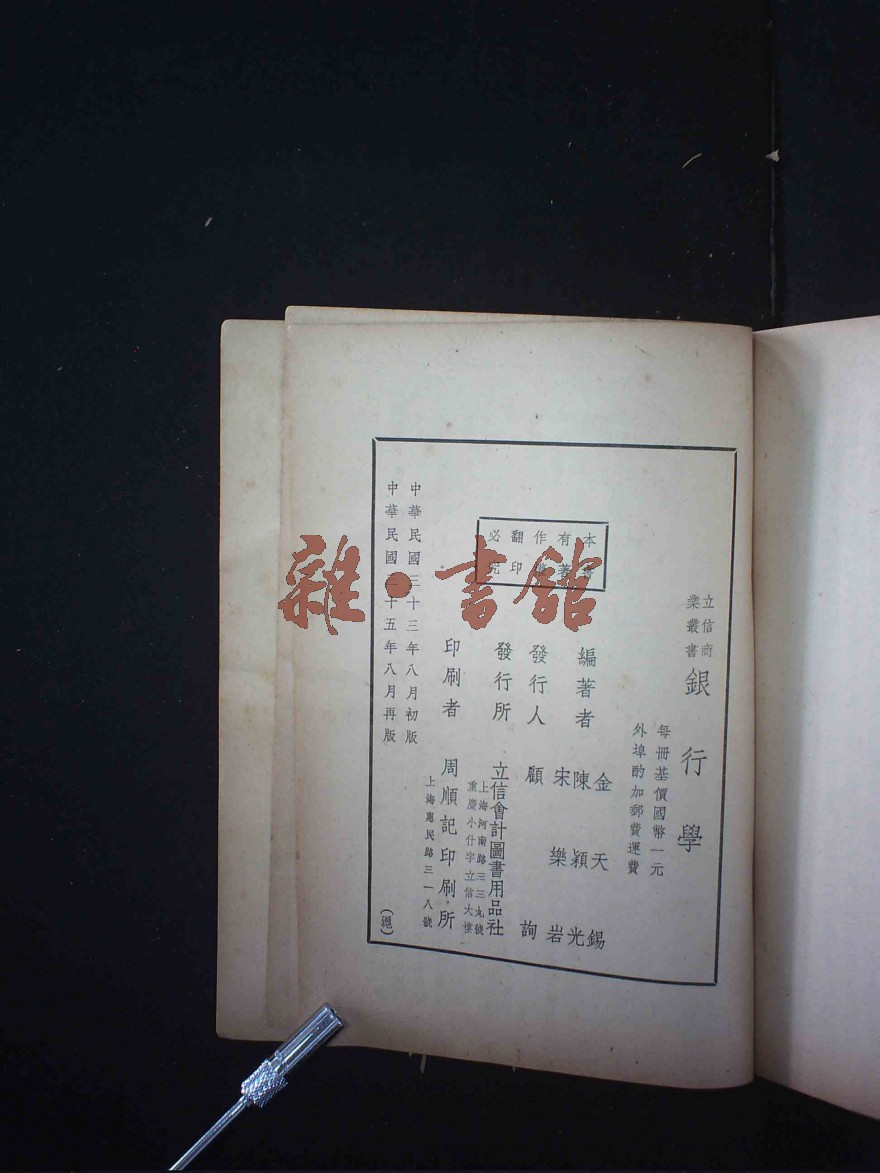 立信商業叢書
銀行學
每冊基價國幣一元
外埠酌加郵費運費
本書有著作權翻印必究
編著者 金天錫 陳穎光 宋樂岩
發行人 顧詢
發行所 立信會計圖書用品社
上海河南路三三九號
重慶小什字立信大樓
印刷者 周順記印刷所
上海惠民路三一八號
中華民國三十三年八月初版
中華民國三十五年八月再版
雜·書館